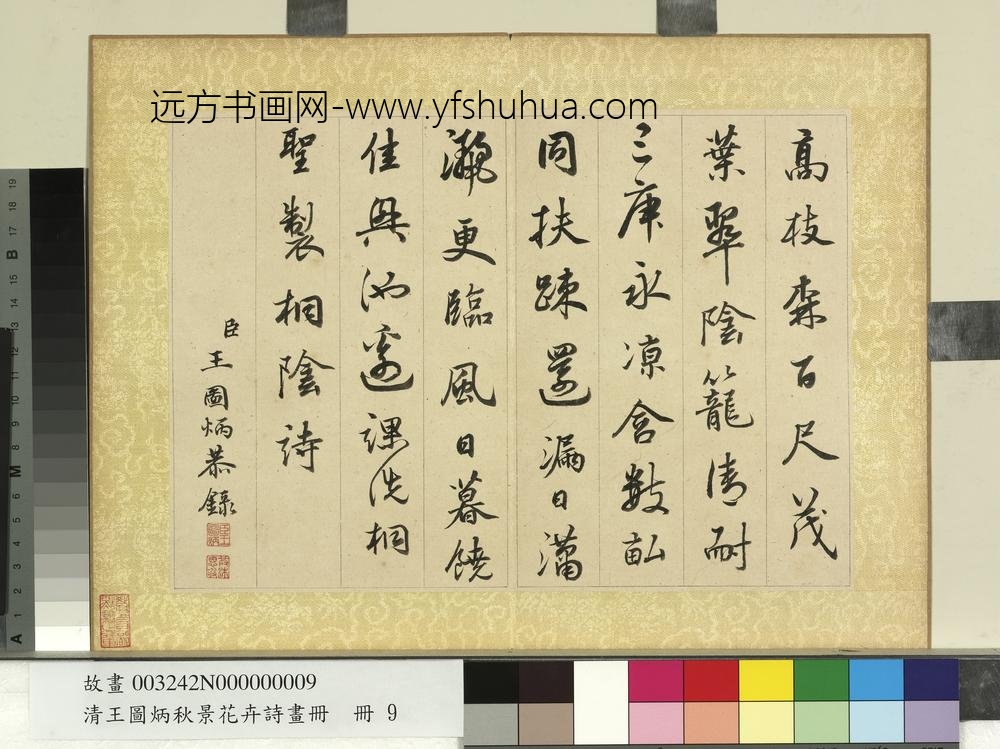 远方书画网-www.yfshuhua.com
高枝森百尺茂
葉翠陰籠清耐
三庚永凉含數畝
同扶踈還漏日瀟
灑更臨風日暮饒
佳興池邊課洗桐
聖製桐陰詩
臣王圖炳恭錄
故畫 003242N000000009
清王圖炳秋景花卉詩畫冊 冊 9